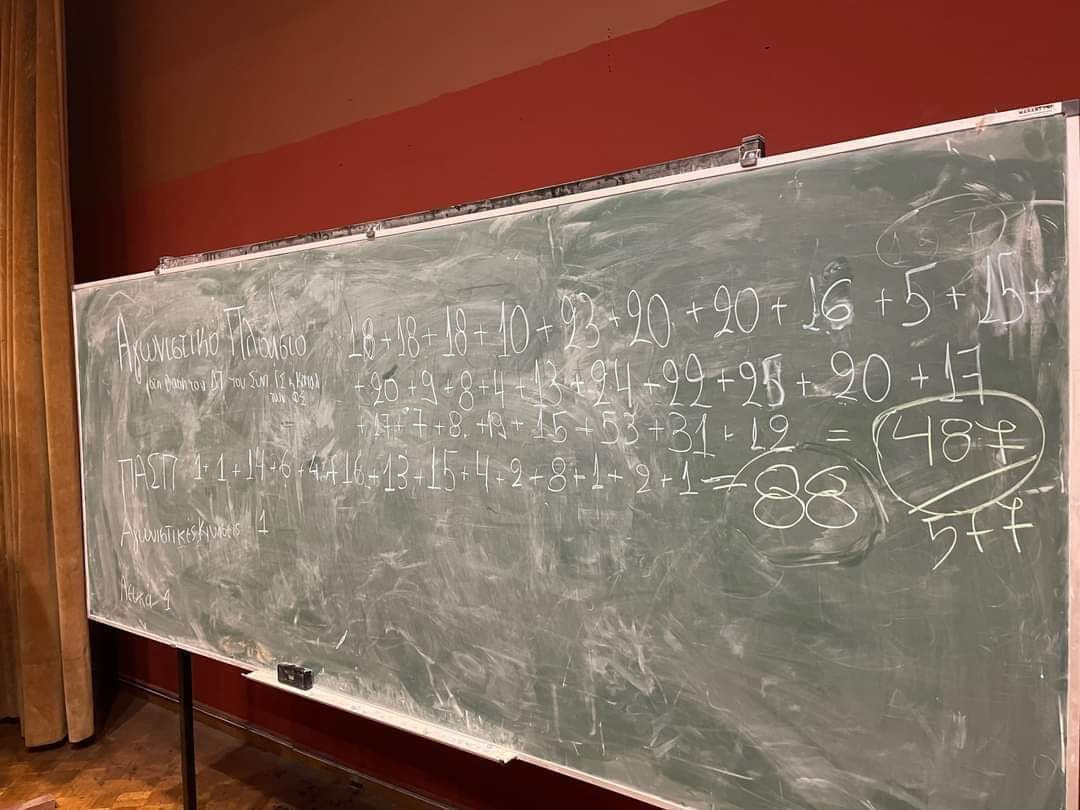 Αγωνιστικό Πλαίσιο 18+18+18+10+23+20+20+16+5+15+
+20+9+8+4+13+24+22+25+20+17
+17+7+8+19+15+53+31+12 = 487
ΠΑΣΠ 1+1+14+6+4+16+13+15+4+2+8+1+2+1= 88
577
Αγωνιστικές Κινήσεις 1
Λευκά 1